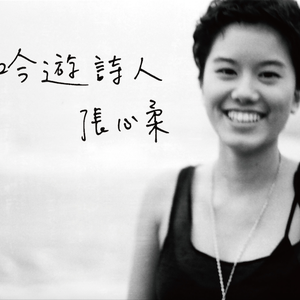 吟遊詩人
張心柔